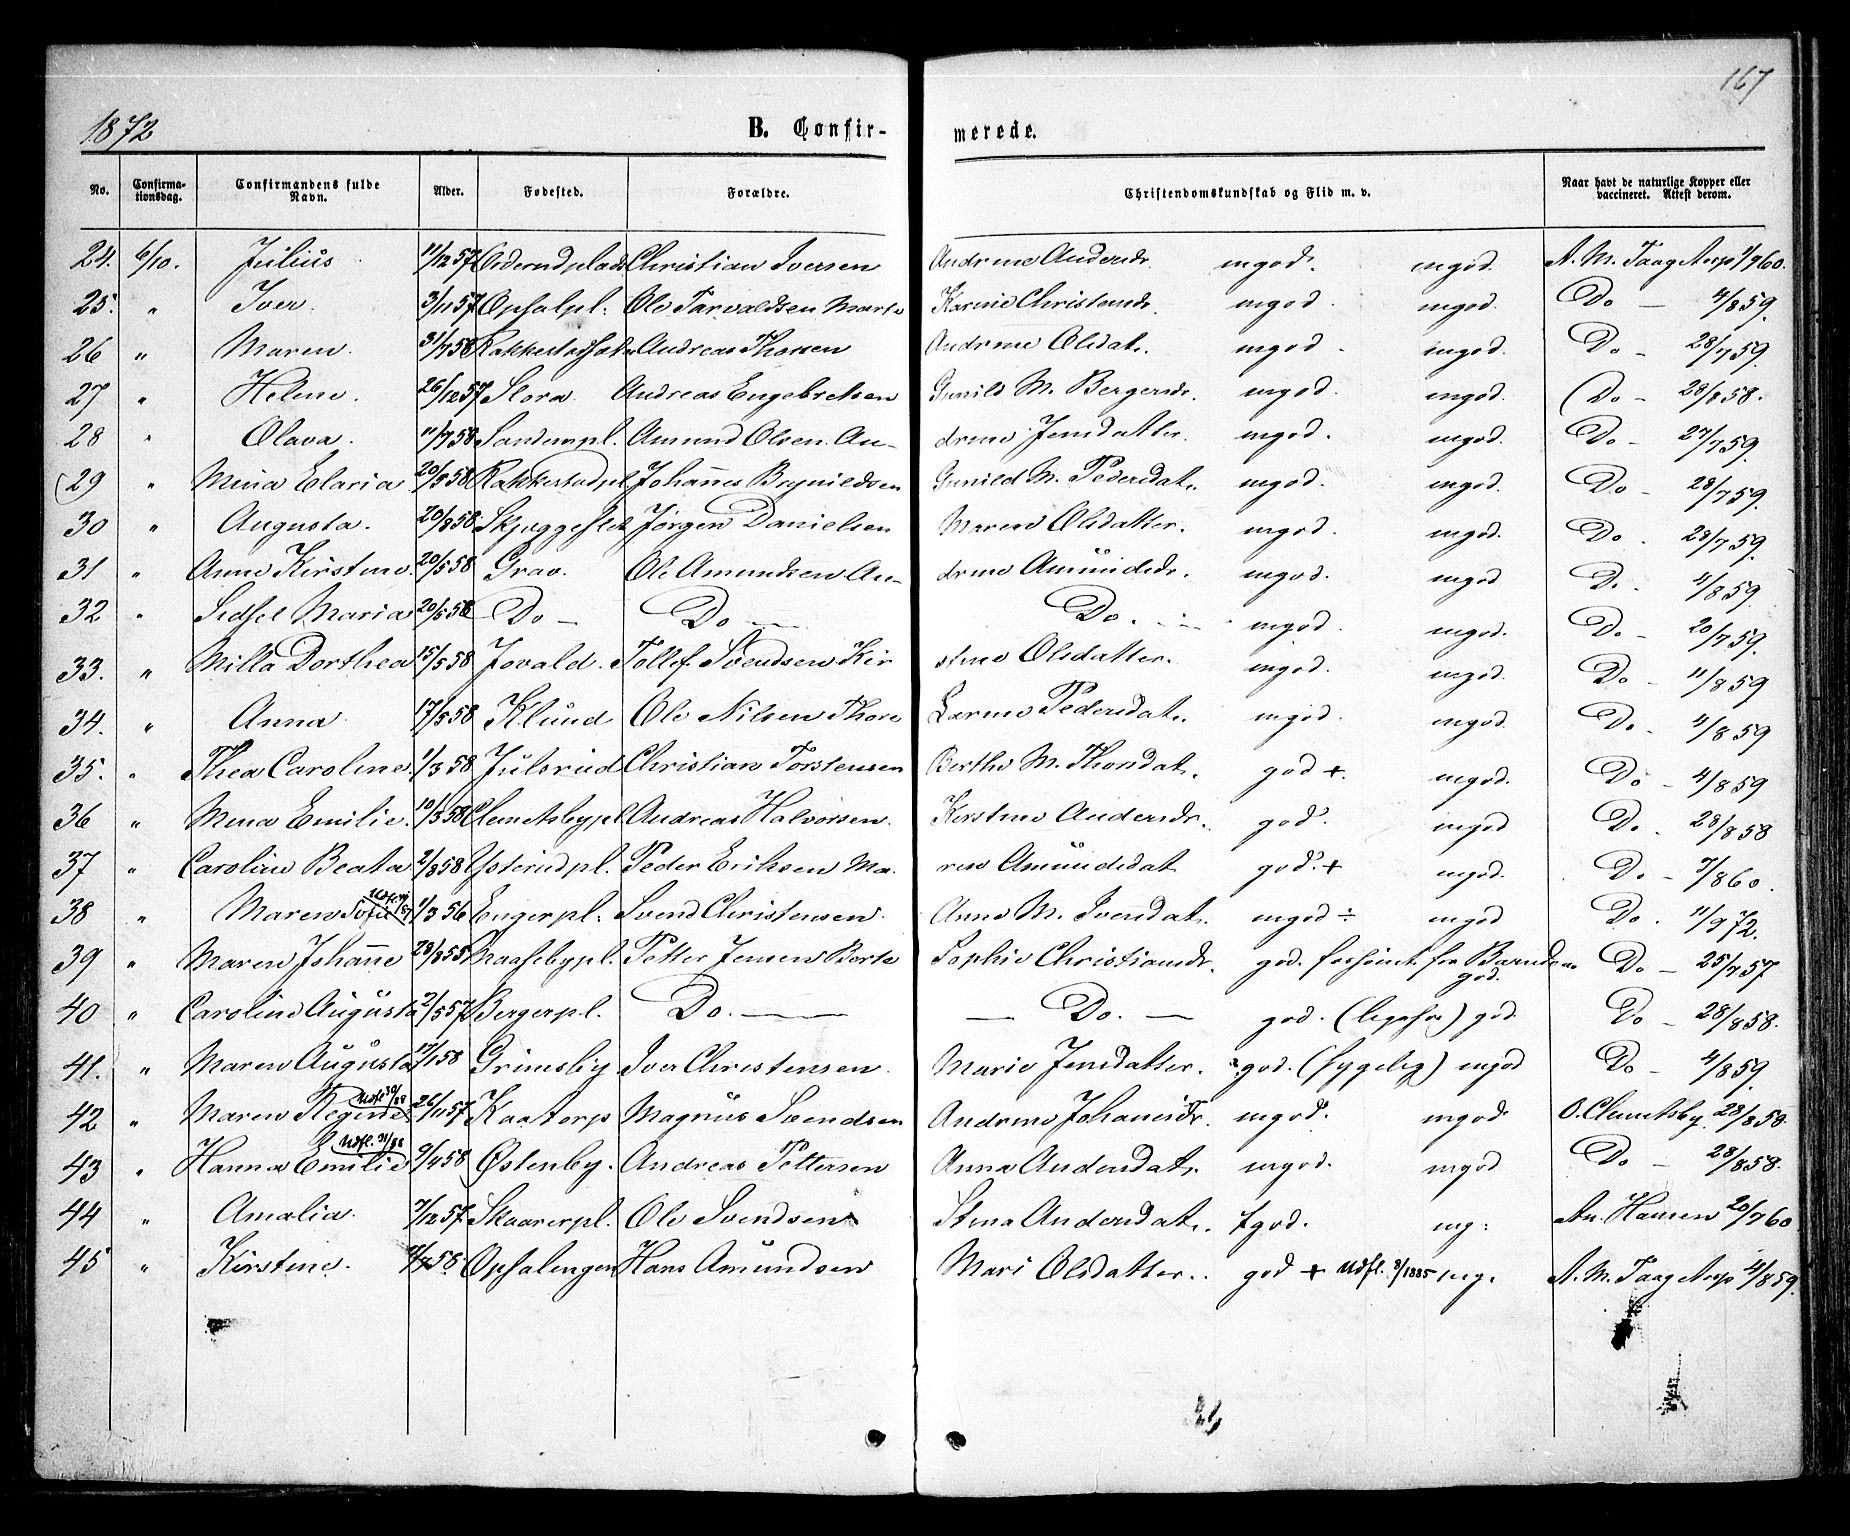 167
1872
B. Confir- merede.
No. Confirma-tionsdag. Confirmandens fulde Navn. Alder. Fødested. Forældre. Christendomskundskab og Flid m. v. Naar havt de naturlige Kopper eller vaccineret. Attest derom.
24. 6/10. Julius 11/12 57 Christian Iversen Andrine Andersdr. mgod. mgod. A. M. Taag Aasp 1/7 60.
25. " Iver. 3/11 57 Opsalpl. Ole Tarvaldsen Marte Karine Christensdr. mgod. mgod. Do — 4/8 59.
26 " Maren. 31/7 58 Andreas Thorsen Andrine Olsdat. mgod. mgod. Do — 28/7 59.
27 " Helene. 26/12 57 Slora. Andreas Engebretsen Gunild M. Bergersdr. mgod. mgod. Do — 28/8 58.
28 " Olava. 11/7 58 Sandempl. Amund Olsen An- drine Jensdatter. mgod. mgod. Do — 27/7 59.
29 " Mina Elaria 20/5 58 Rakkestadpl. Johannes Brynildsen Gunild M. Pedersdat. mgod. mgod. Do — 28/7 59.
30 " Augusta. 20/8 58. Jørgen Danielsen Maren Olsdatter. mgod. mgod. Do . 28/7 59.
31 " Anne Kirstine. 20/5 58 Grav. Ole Amundsen An- drine Amundsdr. mgod. mgod Do . 4/8 59.
32 " Sidsel Maria 20/5 58 Do — Do — Do. — mgod. mgod. Do — 20/7 59.
33. " Milla Dorthea 15/5 58 Jovald. Tollef Svendsen Kir stine Olsdatter. mgod. mgod. Do — 11/8 59
34. " Anna 17/5 58 Klund Ole Nilsen Thore Larine Pedersdat. mgod. mgod. Do . 4/8 59
35. " Thea Caroline. 1/3 58 Julsrud Christian Torstensen Berthe M. Thorsdat. god +. mgod. Do — 4/8 59
36 " Mina Emilie. 10/3 58 Clemetsbypl Andreas Halvorsen. Kirstine Andersdr. god. mgod Do . 28/8 58
37 " Caroline Beata 2/8 58 Ysterudpl. Peder Eriksen Ma- ren Amundsdat god. + mgod. Do — 7/8 60.
38 " Maren Sofie 1/3 56 Engerpl. Svend Christensen. Anne M. Ivensdat. mgod ÷ mgod Do . 11/9 72.
39 " Maren Johanne 28/8 55 Petter Jensen Berte Sophie Christiansdr. god. god. Do — 25/7 57
40 " Caroline Augusta 2/5 57 Bergerpl. Do. — — Do. — god. god. Do — 28/8 58.
41. " Maren Augusta 17/1 58 Grimsby Iver Christensen. Marie Jensdatter. god. (sygelig) mgod Do — 4/8 59.
42 " Maren Regine Udfl. 30/88 26/11 57 Kaatorp Magnus Svendsen Andrine Johanisdr. mgod. mgod O. Clemetsby 28/8 58.
43 " Hanna Emilie Udfl. 31/88 9/4 58 Østenby. Andreas Pettersen Anna Andersdat. mgod. mgod Do — 28/8 58.
44 " Amalia. 7/12 57. Skaarerpl. Ole Svendsen Stina Andersdat. tgod. mg: An. Hansen 20/7 60
45 " Kirstine. 58. Opsalengen Hans Amundsen Mari Olsdatter. god + Udfl. 3/1885 mg. A. M. Taag Aasp 4/8 59.